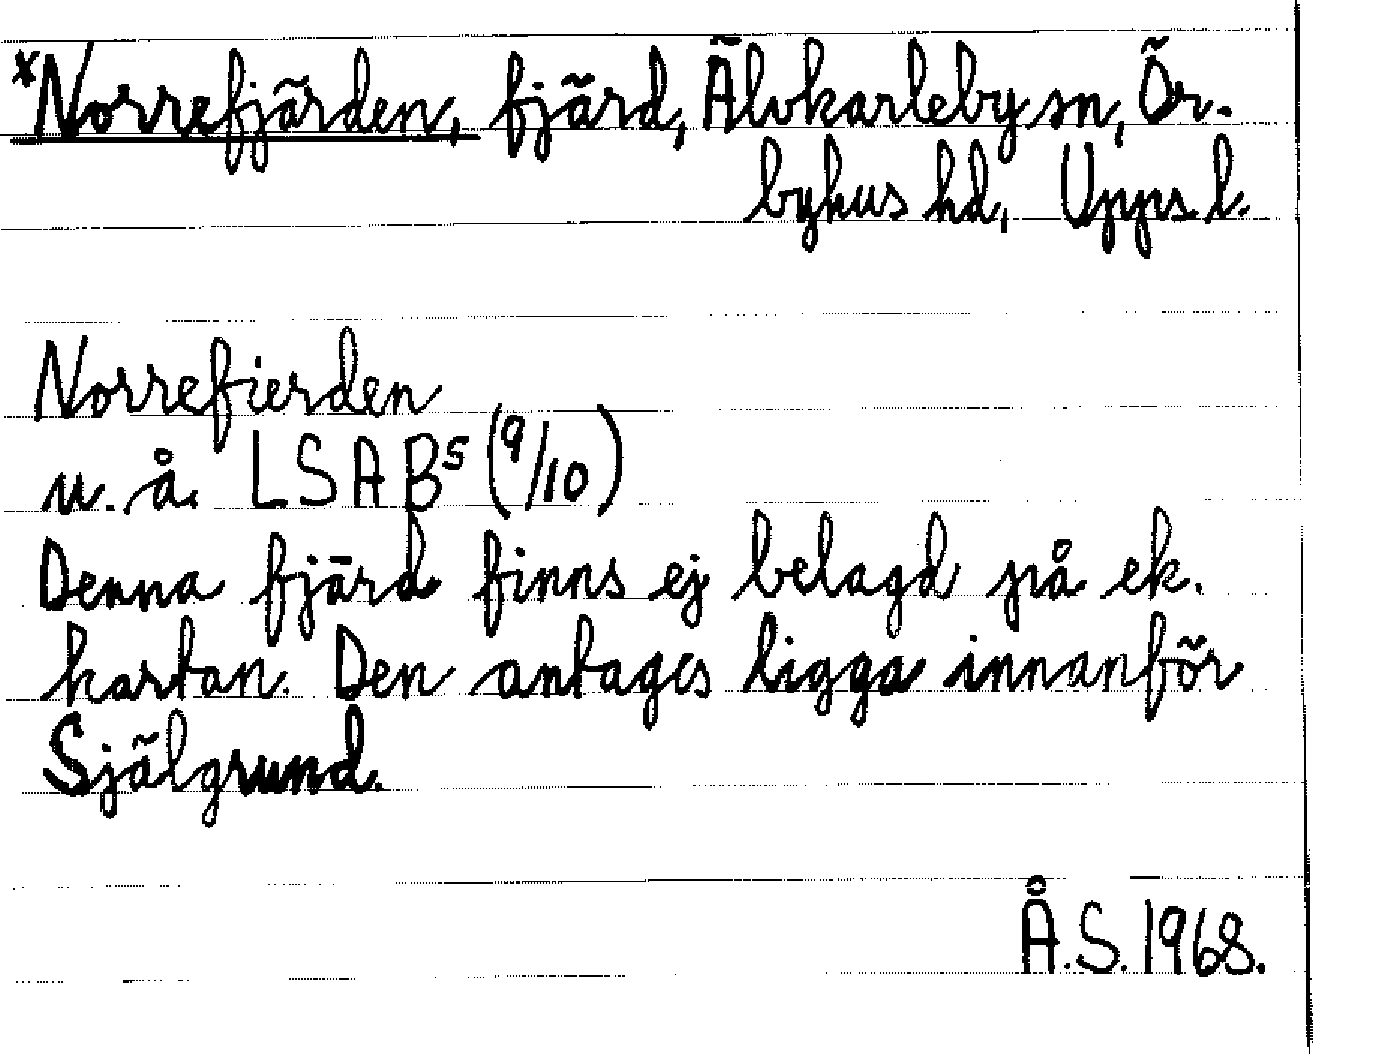 *Norrefjärden, fjärd, Älvkarleby sn, Ör-
byhus hd, Upps. l.
Norrefierden
u. å. LSA Bˢ (9/10)
Denna fjärd finns ej belagd på ek.
kartan. Den antages ligga innanför
Själgrund.
Å.S. 1968.